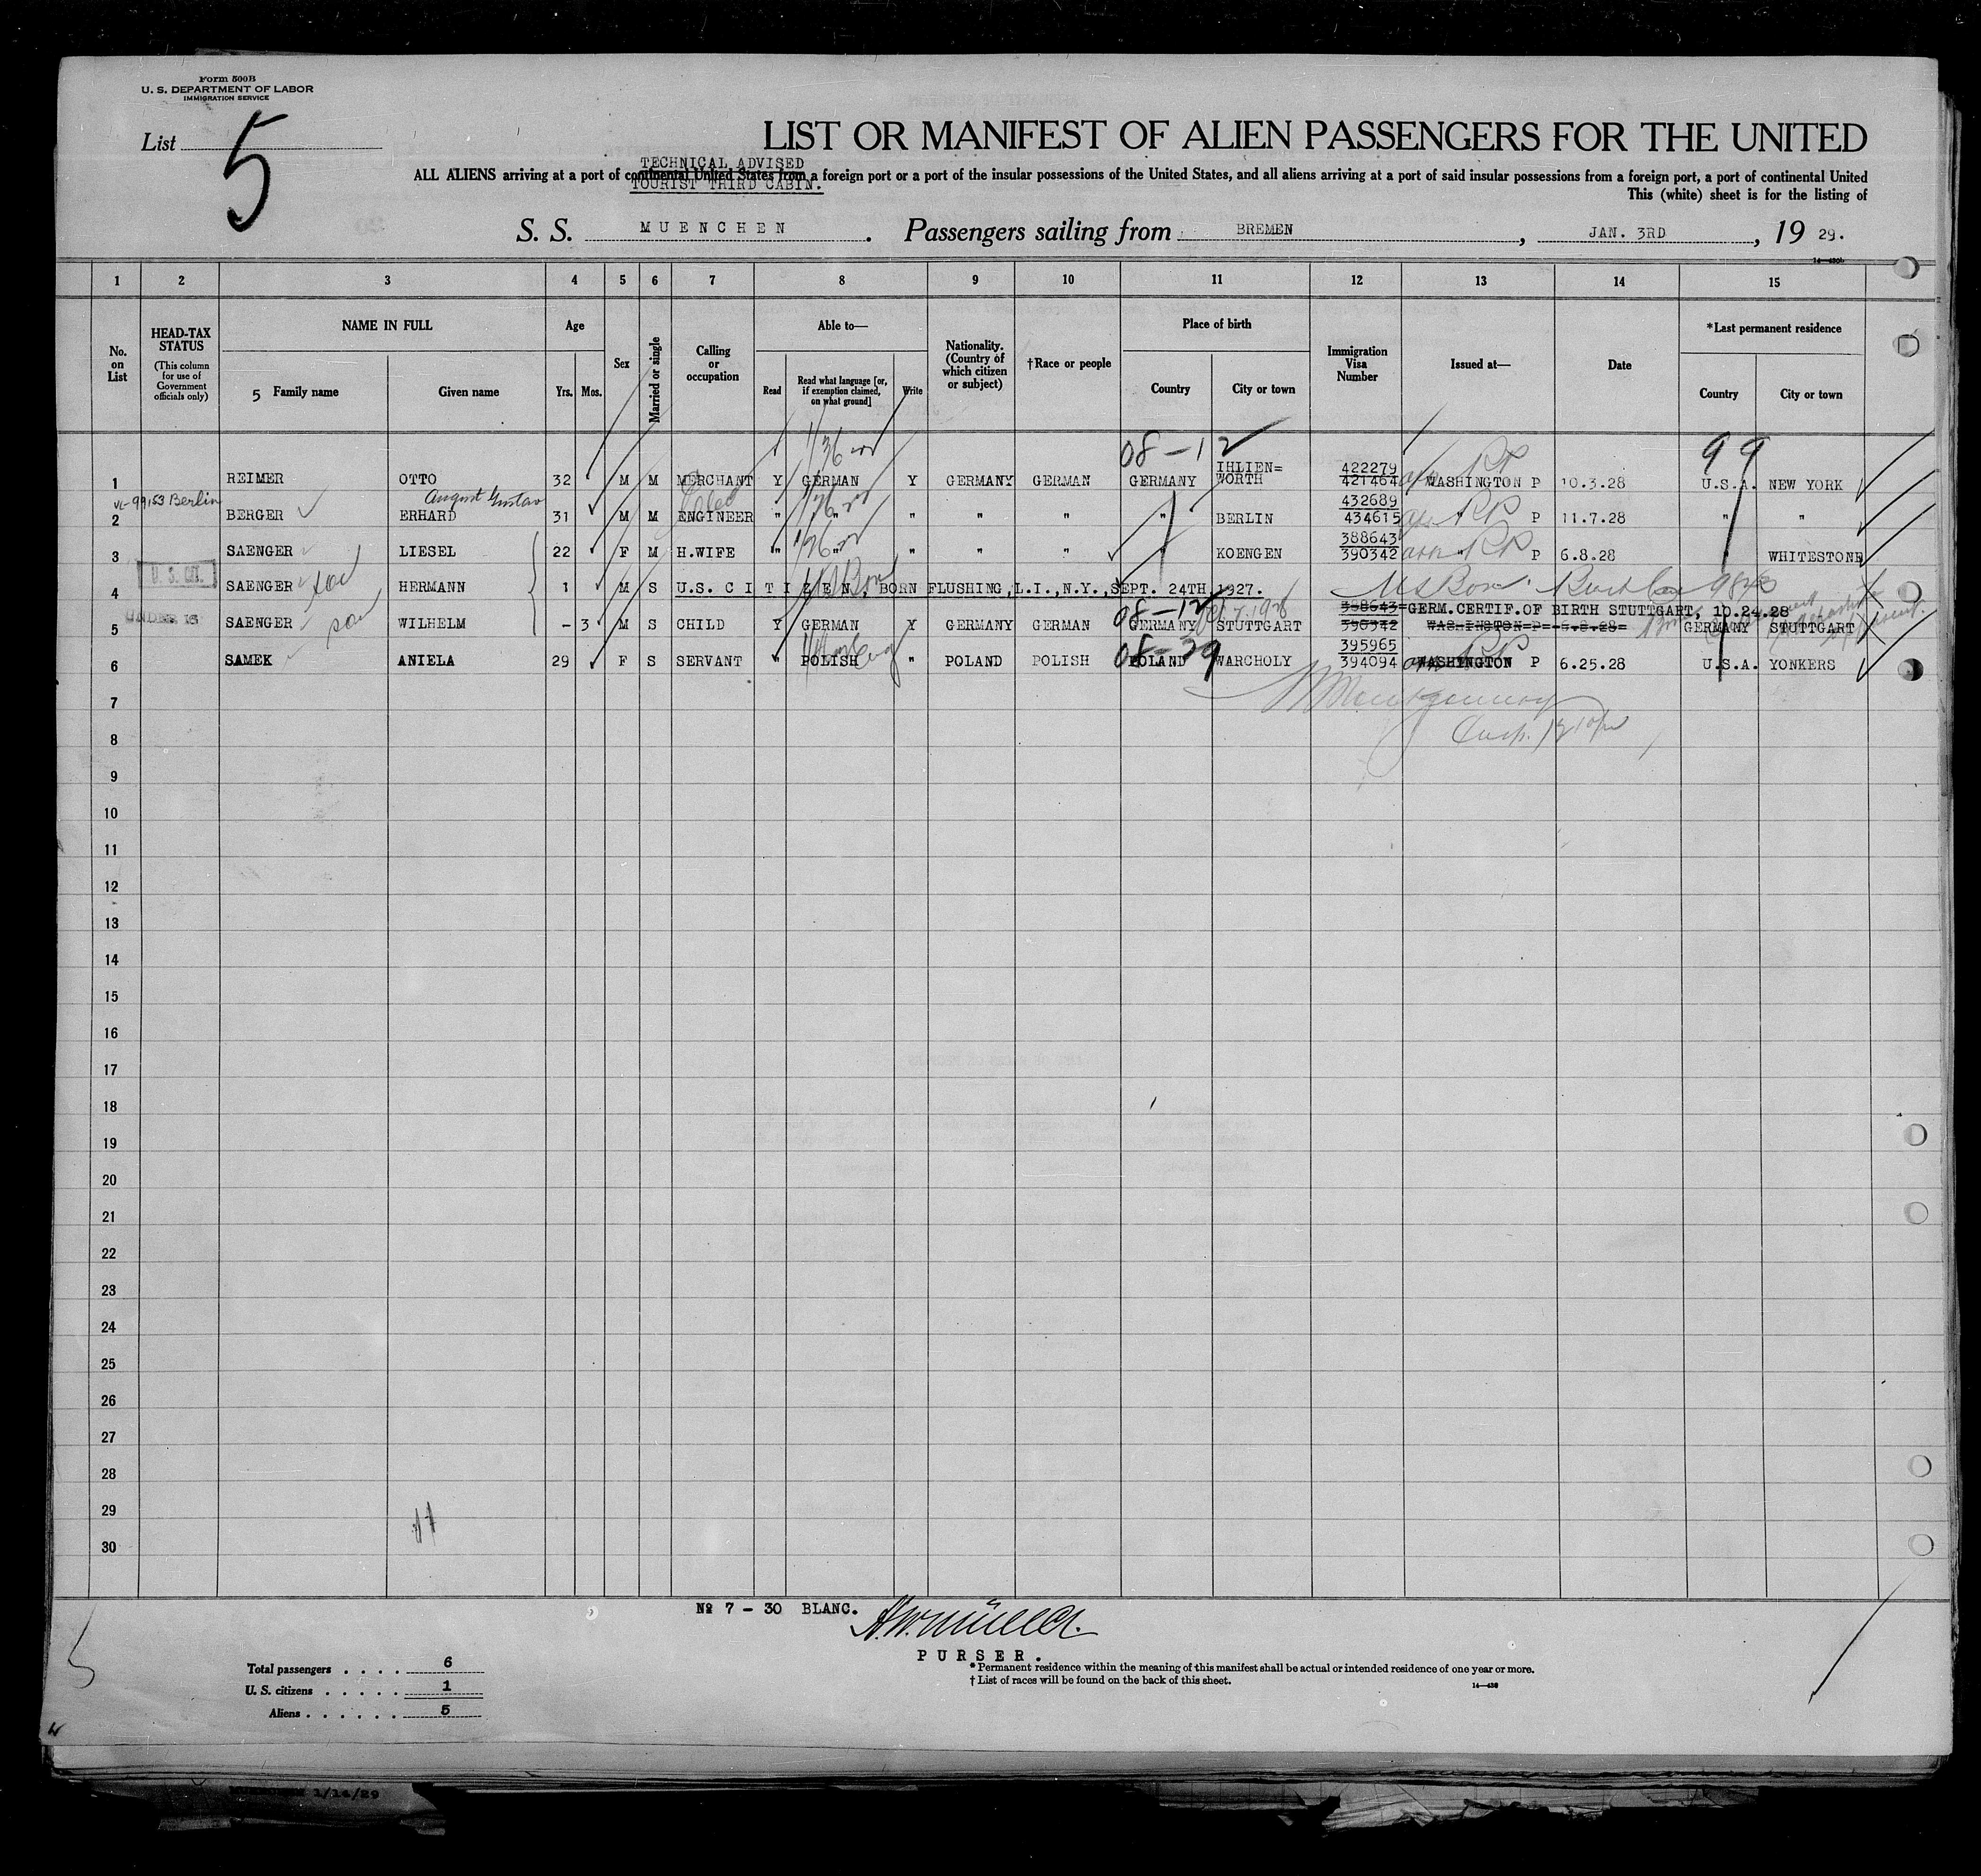 Form 500B
U. S. DEPARTMENT OF LABOR
IMMIGRATION SERVICE
List 5
LIST OR MANIFEST OF ALIEN PASSENGERS FOR THE UNITED
TECHNICAL ADVISED
ALL ALIENS arriving at a port of continental United States from a foreign port or a port of the insular possessions of the United States, and all aliens arriving at a port of said insular possessions from a foreign port, a port of continental United
TOURIST THIRD CABIN.
This (white) sheet is for the listing of
S. S. MUENCHEN. Passengers sailing from BREMEN, JAN. 3RD, 19 29.
1 2 3 4 5 6 7 8 9 10 11 12 13 14 15
No. on List
HEAD-TAX STATUS (This column for use of Government officials only)
NAME IN FULL
5 Family name
Given name
Age
Yrs. Mos.
Sex
Married or single
Calling or occupation
Able to—
Read
Read what language [or, if exemption claimed, on what ground]
Write
Nationality. (Country of which citizen or subject)
†Race or people
Place of birth
Country
City or town
Immigration Visa Number
Issued at—
Date
*Last permanent residence
Country
City or town
08-12 99
1 REIMER OTTO 32 M M MERCHANT Y GERMAN Y GERMANY GERMAN GERMANY IHLIEN=WORTH 422279 421464 WASHINGTON P 10.3.28 U.S.A. NEW YORK
99153 Berlin August Gustav
2 BERGER ERHARD 31 M M ENGINEER " " " " " " BERLIN 432689 434615 " P 11.7.28 " "
3 SAENGER LIESEL 22 F M H.WIFE " " " " " " KOENGEN 388643 390342 " P 6.8.28 WHITESTONE
U. S. CIT.
4 SAENGER HERMANN 1 M S U.S. CITIZEN, BORN FLUSHING,L.I.,N.Y.,SEPT. 24TH 1927.
UNDER 16
08-12
388643 GERM.CERTIF.OF BIRTH STUTTGART, 10.24.28
5 SAENGER son WILHELM - 3 M S CHILD Y GERMAN Y GERMANY GERMAN GERMANY STUTTGART 390342 WASHINGTON P 6.8.28 GERMANY STUTTGART
08-39
6 SAMEK ANIELA 29 F S SERVANT " POLISH " POLAND POLISH POLAND WARCHOLY 395965 394094 WASHINGTON P 6.25.28 U.S.A. YONKERS
7
8
9
10
11
12
13
14
15
16
17
18
19
20
21
22
23
24
25
26
27
28
29
30
№ 7 - 30 BLANC.
H.W.Müller.
PURSER.
Total passengers . . . . 6
U. S. citizens . . . . . 1
Aliens . . . . . . 5
* Permanent residence within the meaning of this manifest shall be actual or intended residence of one year or more.
† List of races will be found on the back of this sheet.
1/14/29